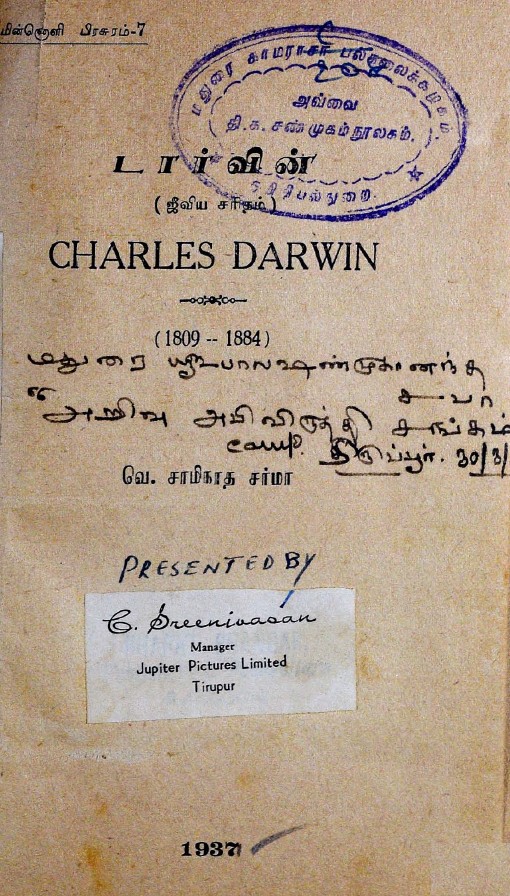 மின்னொளி பிரசுரம்-7
மதுரை காமராசர் பல்கலைக்கழகம்.
அவ்வை
தி. க. சண்முகம் நூலகம்.
டார்வின்
( ஜீவிய சரிதம் )
CHARLES DARWIN
(1809 -- 1884)
மதுரை பாலஷண்முகானந்த
சபா
அறிவு அபிவிருத்தி சங்கம்
camp. திருப்பூர். 30/3/
வெ. சாமிநாத சர்மா
PRESENTED BY
C. Sreenivasan
Manager
Jupiter Pictures Limited
Tirupur
1937